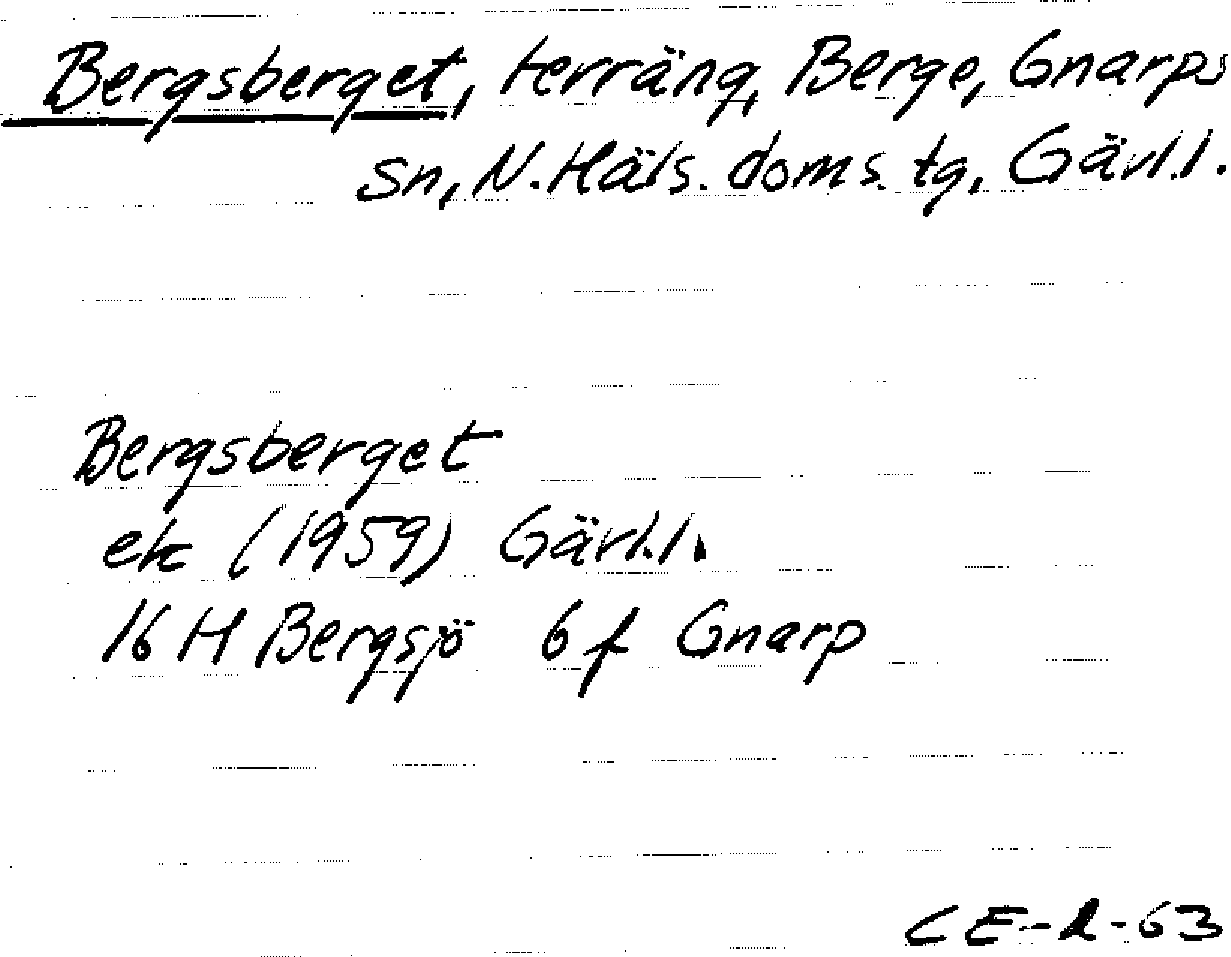 Bergsberget, terräng, Berge, Gnarps
sn, N. Häls. doms. tg, Gävl.l.
Bergsberget
ek (1959) Gävl.l.
16 H Bergsjö 6 f Gnarp
CE-R-63